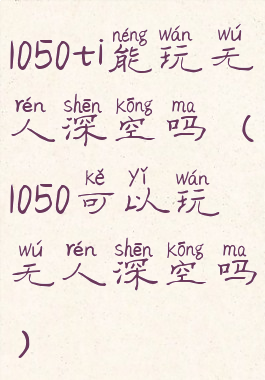 néng wán wú
1050ti能玩无
rén shēn kōng ma
人深空吗（
kě yǐ wán
1050可以玩
wú rén shēn kōng ma
无人深空吗
）